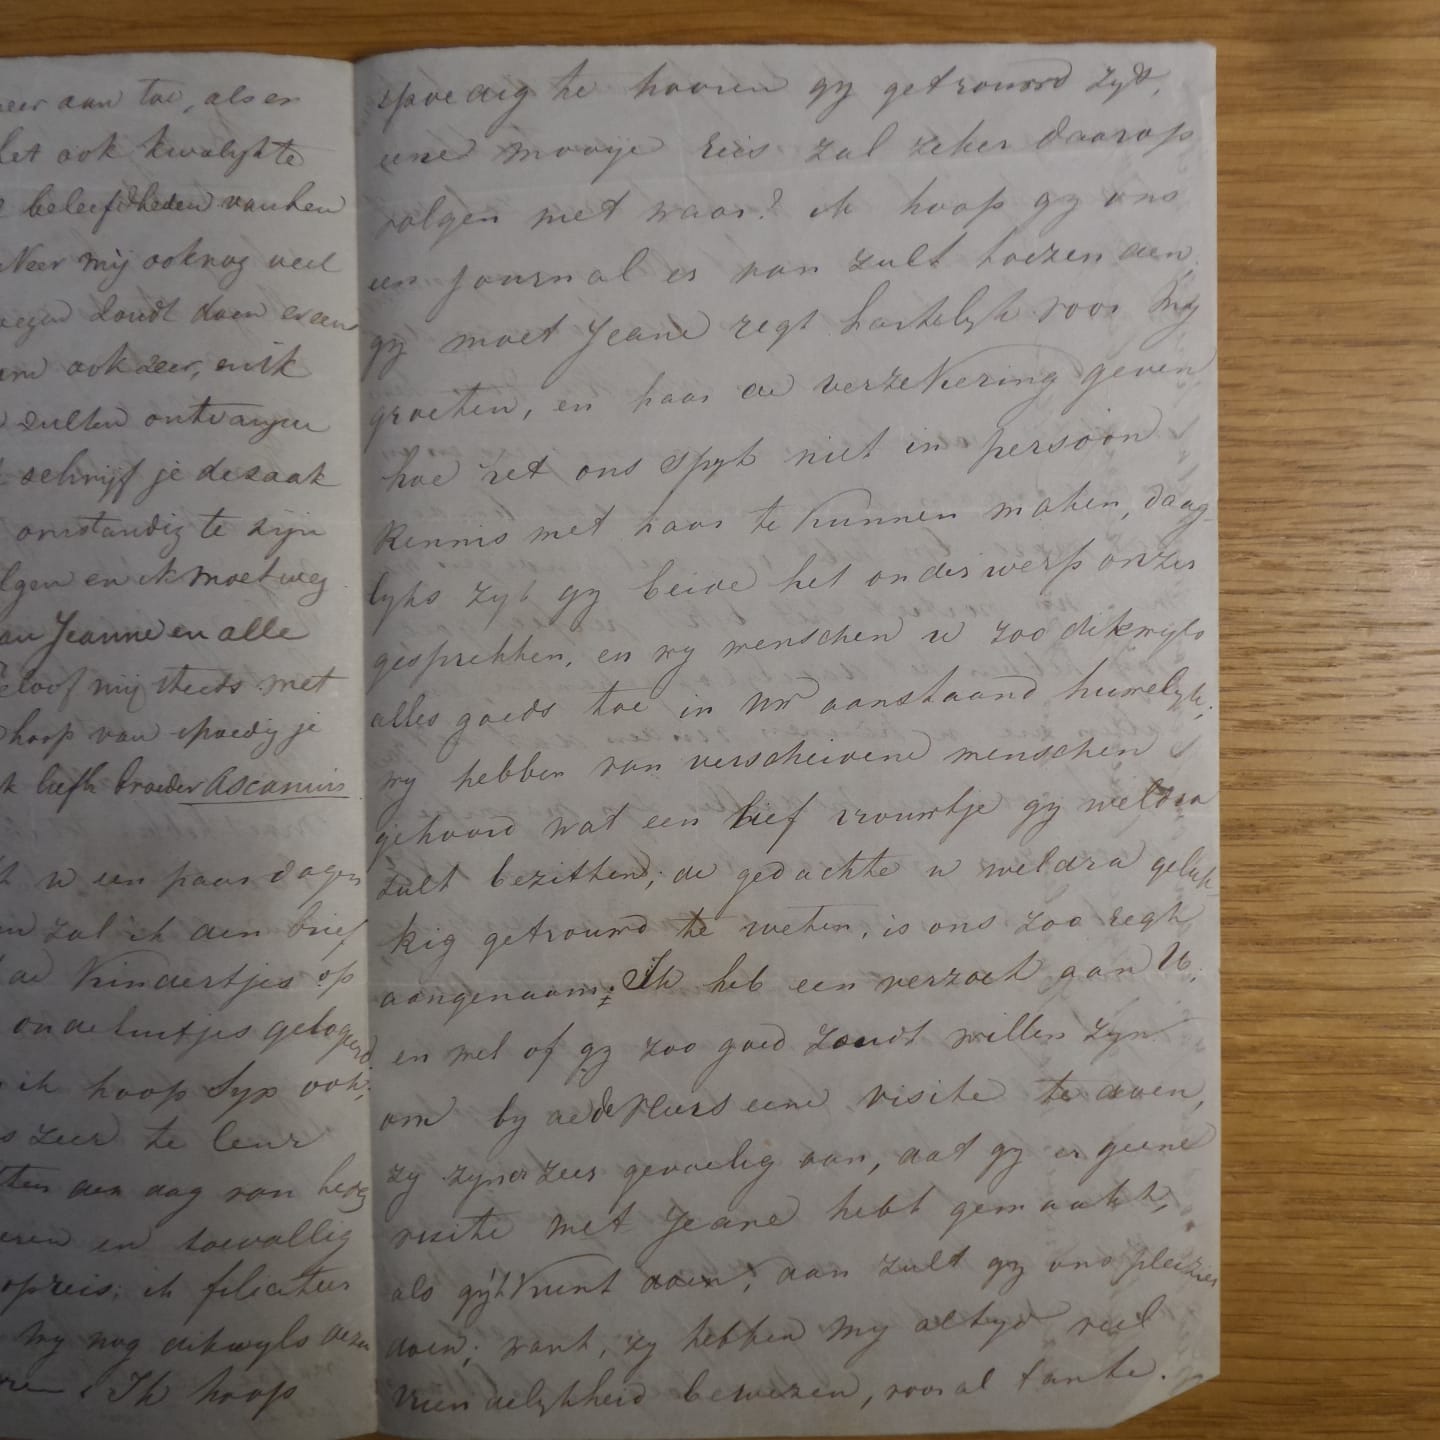 eer aan toe, als er
let ook kwalijk te
beleefdheden van hen
Neer mij ook nog veel
zoudt doen er een
ook zeer, en ik
zullen ontvangen
schrijf je de zaak
omstandig te zijn
lgen en ik moet weg
an Jeanne en alle
eloof mij steeds met
hoop van spoedig je
k liefh broeder Ascanius
u een paar dagen
zal ik den brief
de Kindertjes op
gelogeerd
ik hoop Syp ook;
s zeer te leur
den dag van
en toevallig
op reis; ik filiciteer
my nog dikwyls deze
Ik hoop
spoedig te hooren gy getrouwd zyt,
eene mooije reis zal zeker daarop
volgen niet waar? ik hoop gy ons
een Journal er van zult toezenden,
gy moet Jeane regt hartelyk voor my
groeten, en haar de verzekering geven
hoe het ons spyt niet in persoon
kennis met haar te kunnen maken, daag-
lyks zyt gy beide het onderwerp onzer
gesprekken, en wy wenschen u zoo dikwyls
alles goeds toe in uw aanstaand huwelyk;
wy hebben van verscheidene menschen
gehoord wat een lief vrouwtje gy weldra
zult bezitten; de gedachte u weldra geluk-
kig getrouwd te weten, is ons zoo regt
aangenaam; Ik heb een verzoek aan U,
en wel of gy zoo goed zoudt willen zyn
om by de de Neers eene visite te doen,
zy zyn er zeer gevoelig van, dat gy er geene
visite met Jeane hebt gemaakt,
als gy 't kunt doen, dan zult gy ons pleizier
doen; want, zy hebben my altyd veel
vriendelykheid bewezen, vooral tante.